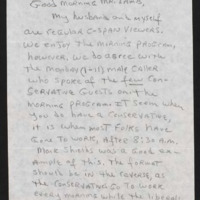 Good morning Mr. Lamb,
My husband and myself
are regular C-SPAN viewers.
We enjoy the morning program,
however, we do agree with
the member male caller
who spoke of the few con-
servative guests on the
morning program. It seems when
you do have a conservative,
it is when most folks have
gone to work, after 8:30 A.M.
Mort Shields was a good ex-
ample of this. The format
should be in the reverse, as
the conservatives go to work
every morning while the liberals